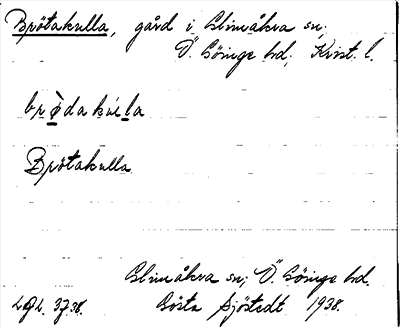 Brötakulla, gård i Glimåkra sn;
Ö. Göinge hd; Krist. l.
brødakúla
Brötakulla
Glimåkra sn; Ö. Göinge hd.
Gösta Sjöstedt 1938.